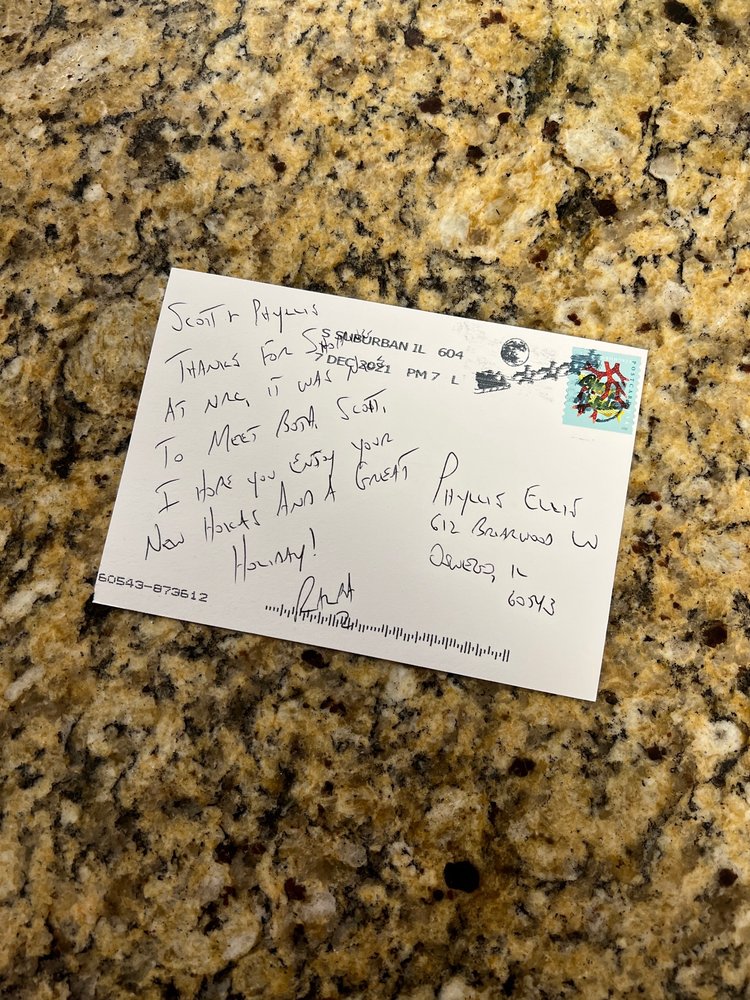 Scott & Phyllis
Thanks for
at NRC, it was
to meet both, Scott.
I hope you enjoy your
New Hokas and a great
Holiday!
S SUBURBAN IL 604
7 DEC 2021 PM 7 L
POSTCARD
Phyllis Ellis
612 Briarwood Ln
Oswego, IL
60543
60543-873612